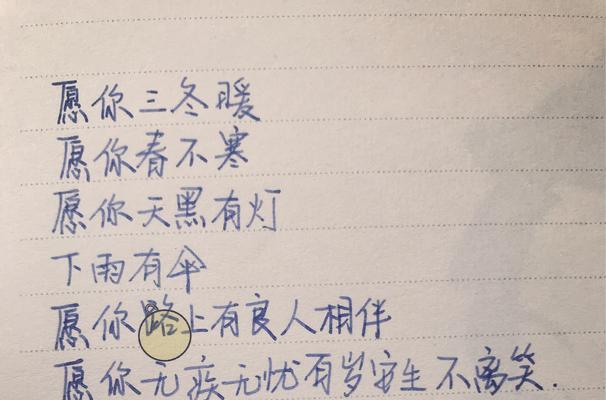 愿你三冬暖
愿你春不寒
愿你天黑有灯
下雨有伞
愿你路上有良人相伴
愿你无疾无忧有岁安生不离笑.